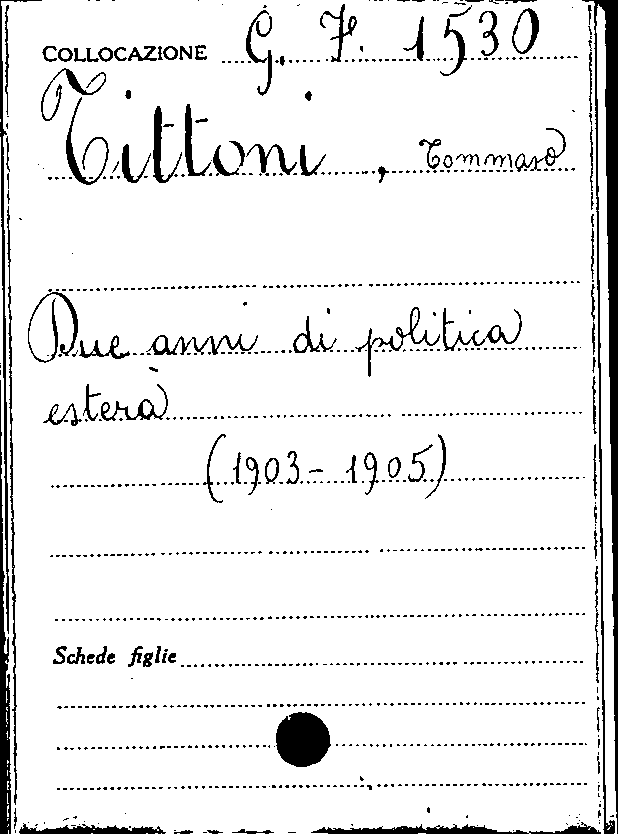 COLLOCAZIONE G. F. 1530
Tittoni, Tommaso
Due anni di politica
estera
(1903-1905)
Schede figlie